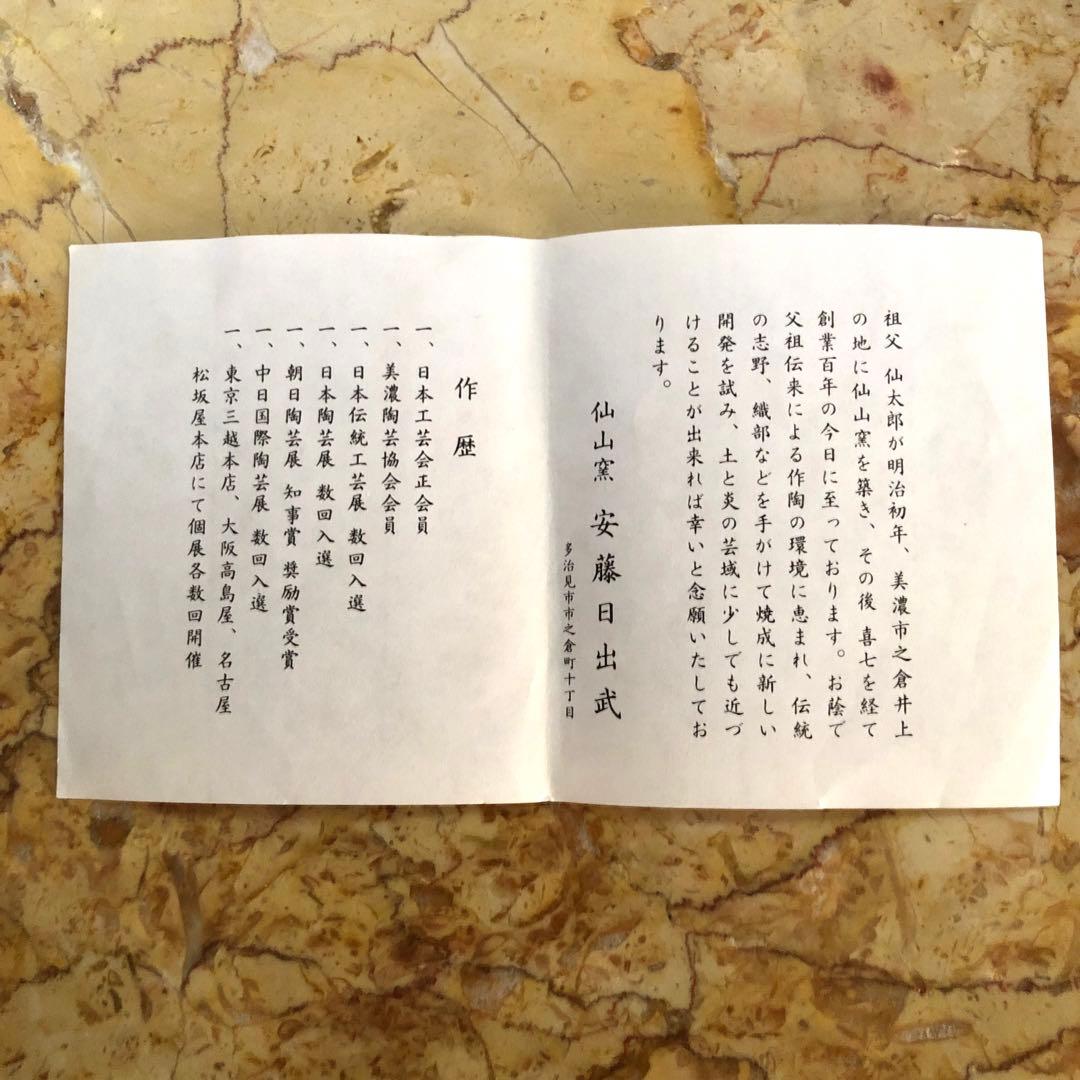 祖父 仙太郎が明治初年、美濃市之倉井上
の地に仙山窯を築き、その後 喜七を経て
創業百年の今日に至っております。お蔭で
父祖伝来による作陶の環境に恵まれ、伝統
の志野、織部などを手がけて焼成に新しい
開発を試み、土と炎の芸域に少しでも近づ
けることが出来れば幸いと念願いたしてお
ります。
仙山窯 安藤日出武
多治見市市之倉町十丁目
作歴
一、日本工芸会正会員
一、美濃陶芸協会会員
一、日本伝統工芸展 数回入選
一、日本陶芸展 数回入選
一、朝日陶芸展 知事賞 奨励賞受賞
一、中日国際陶芸展 数回入選
一、東京三越本店、大阪高島屋、名古屋
松坂屋本店にて個展各数回開催